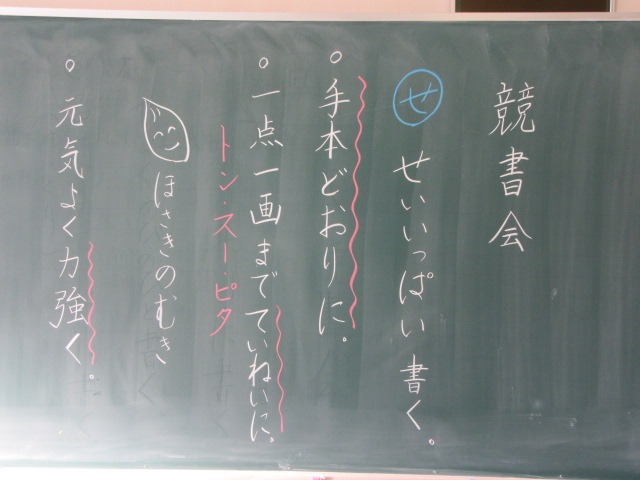 競書会
せ せいいっぱい書く。
○手本どおりに。
○一点一画までていねいに。
トン・スー・ピタ
ほさきのむき
○元気よく力強く。